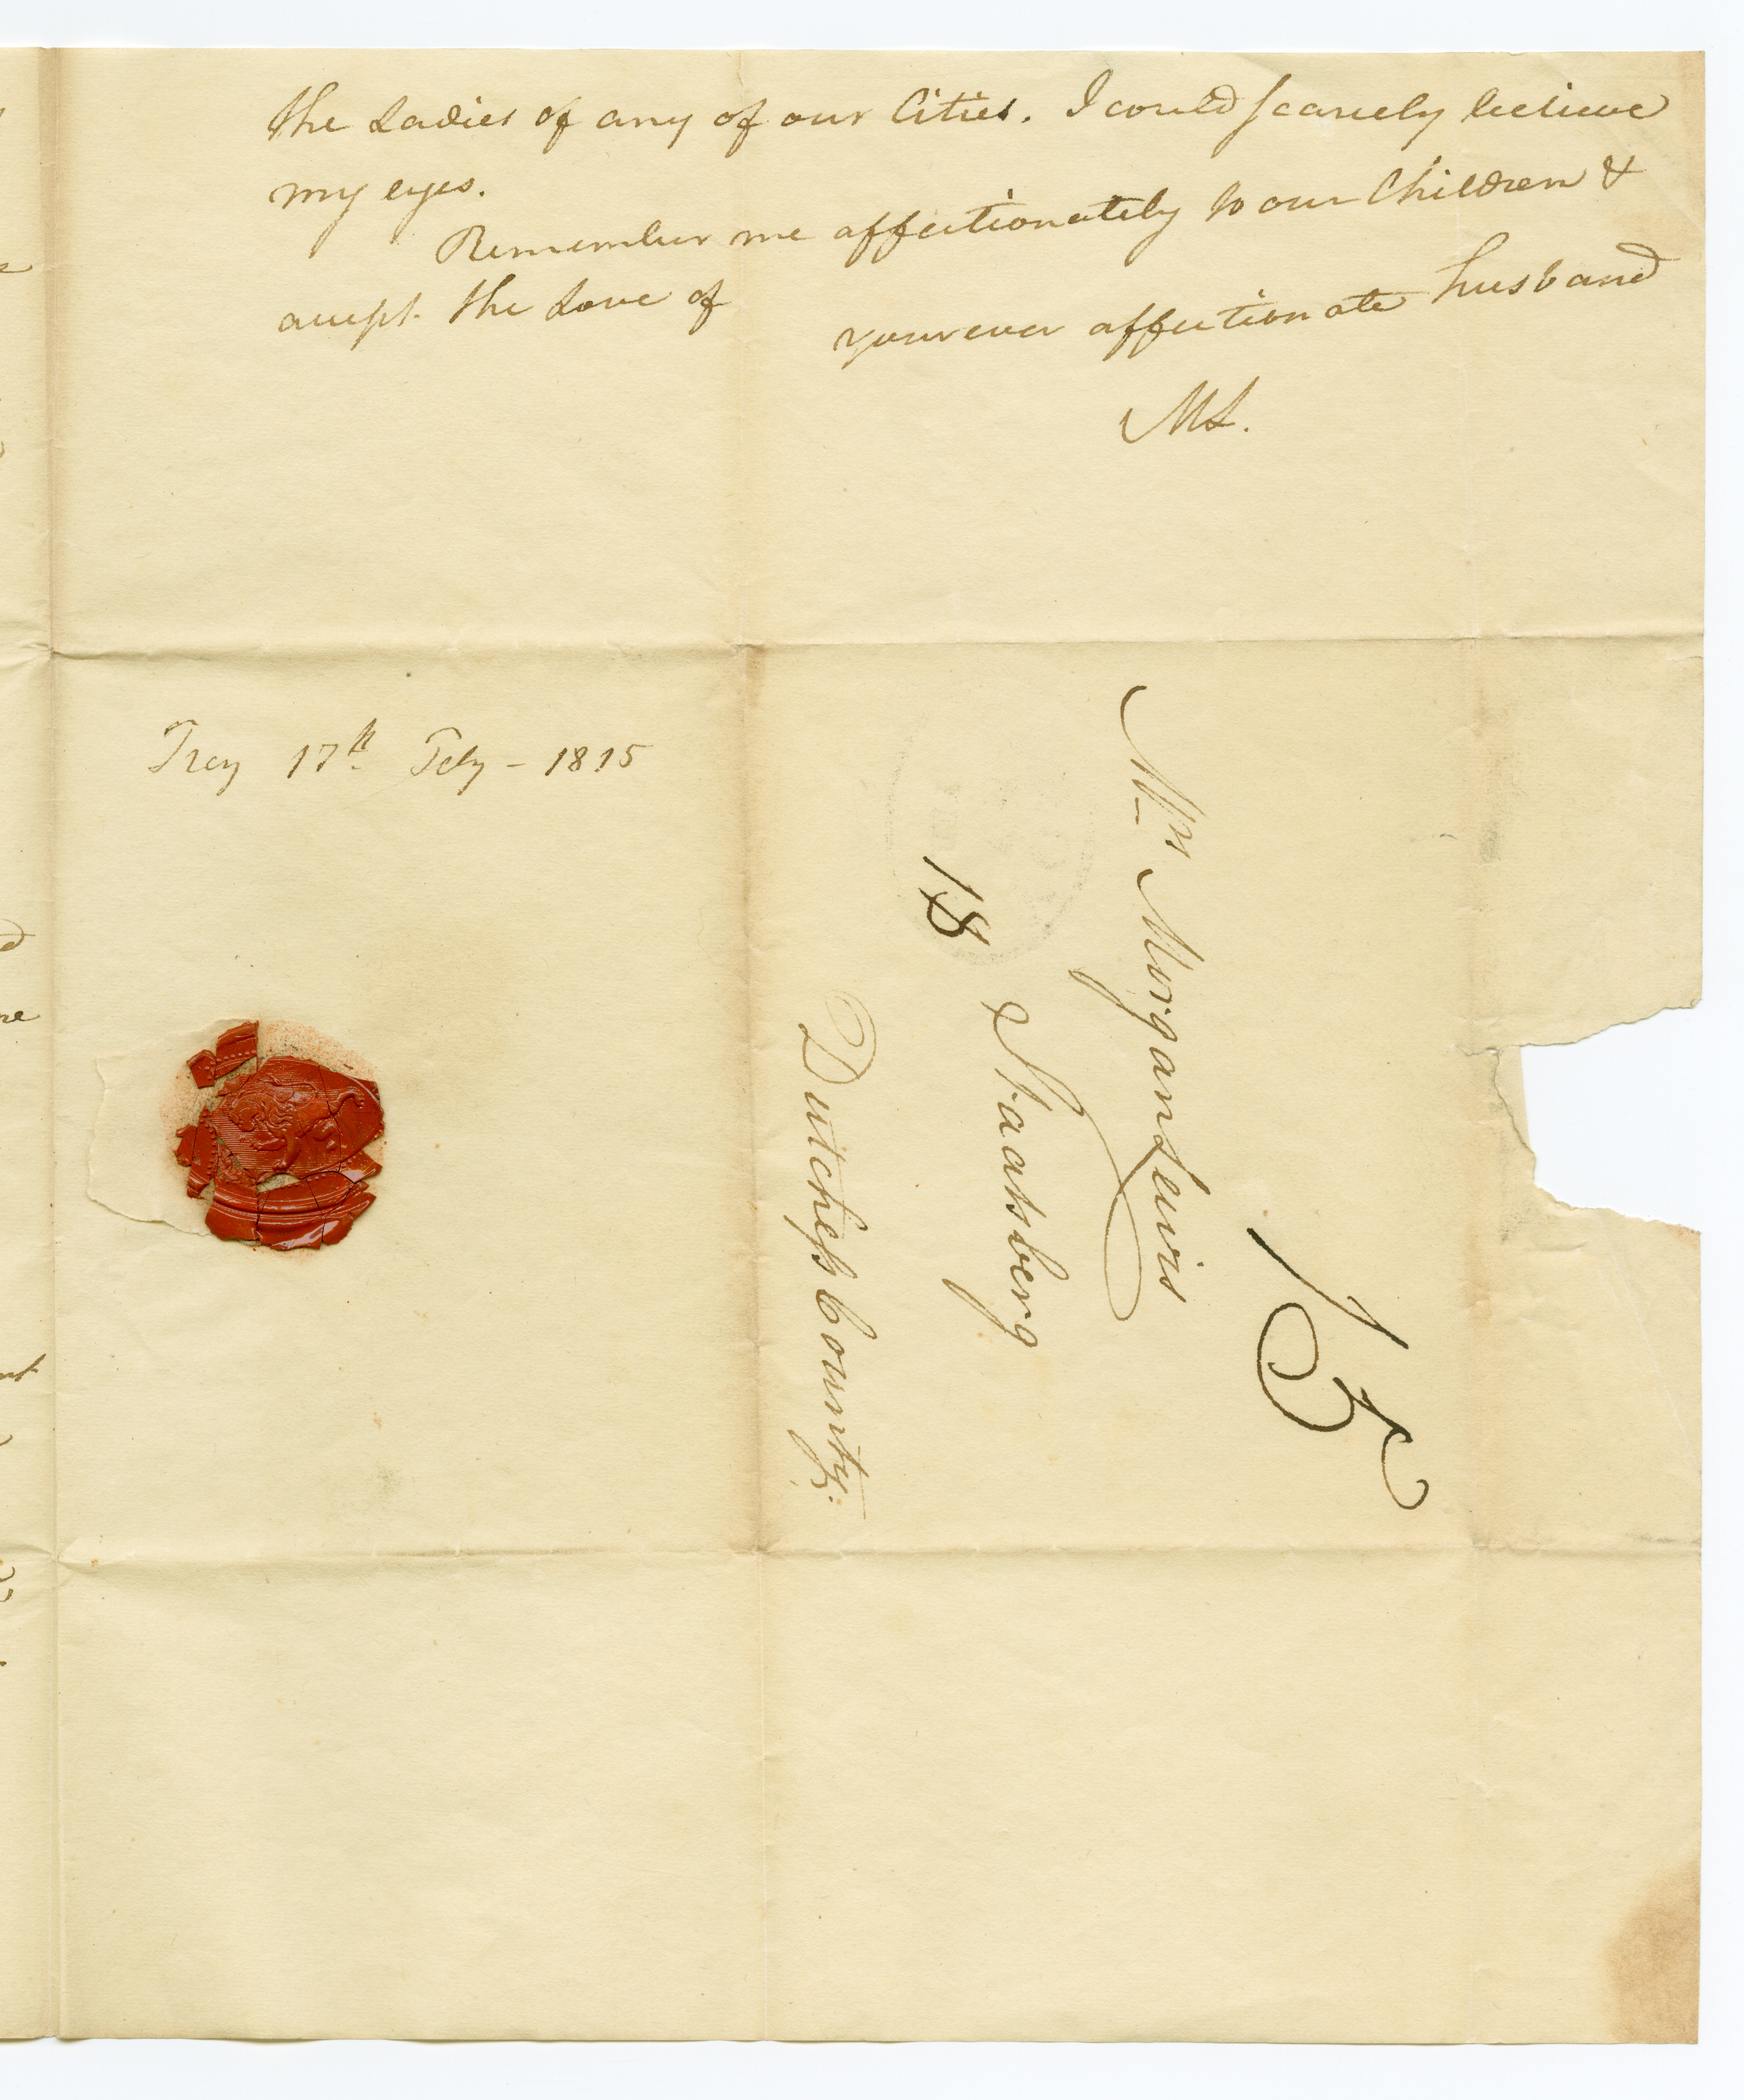 the Ladies of any of our Cities. I could scarcely believe
my eyes.
Remember me affectionately to our Children &
accept the Love of
your ever affectionate husband
ML.
Troy 17th Feby - 1815
Mrs Morgan Lewis
Staatsberg
Dutchess County.
18
15